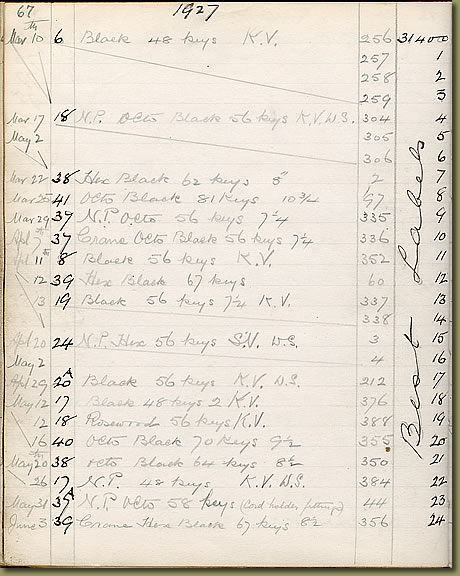 67 1927
Mar 10th 6 Black 48 keys K.V. 256 31400
257 1
258 2
259 3
Mar 17 18 N.P. Octo Black 56 keys K.V. W.S. 304 4
May 2 305 5
306 6
Mar 22 38 Hex Black 62 keys 2 7
Mar 25 41 Octo Black 81 Keys 10 3/4 97 8
Mar 29 37 N.P. Octo 56 keys 7 1/4 335 9
Apl 7 37 Crane Octo Black 56 keys 7 1/4 336 10
Apl 11th 8 Black 56 keys K.V. 352 11
12 39 Hex Black 67 keys 60 12
13 19 Black 56 keys 7 1/2 K.V. 337 13
338 14
Apl 20 24 N.P. Hex 56 keys S.V. W.S. 3 15
May 2 4 16
Apl 29 20A Black 56 keys K.V. W.S. 212 17
May 12 17 Black 48 keys 2 K.V. 376 18
12 18 Rosewood 56 keys K.V. 388 19
16 40 Octo Black 70 Keys 9 1/2 355 20
May 20 38 Octo Black 64 keys 8 1/2 350 21
26 17 N.P. 48 keys K.V. W.S. 384 22
May 31 37A N.P. Octo 58 keys (Cord holder fittings) 44 23
June 3 39 Crane Hex Black 67 keys 8 1/2 356 24
Best Labels